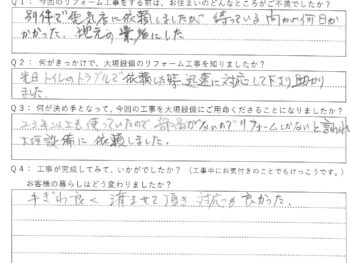 Q1: 今回のリフォーム工事をする前は、お住まいのどんなところがご不満でしたか？
別件で電気店に依頼しましたが 待っている間が何日か
かかった。地元の業者にした
Q2: 何がきっかけで、大垣設備のリフォーム工事を知りましたか？
先日トイレのトラブルで依頼した際 迅速に対応して下さり 助かり
ました。
Q3: 何が決め手となって、今回の工事を大垣設備にご用命くださることになりましたか？
20年以上も使っていたので 部品がないのでリフォームしかないと言われ
大垣設備に依頼しました。
Q4: 工事が完成してみて、いかがでしたか？（工事中にお気付きのことでもけっこうです。）
お客様の暮らしはどう変わりましたか？
手ぎわ良く 済ませて頂き 対応が良かった。